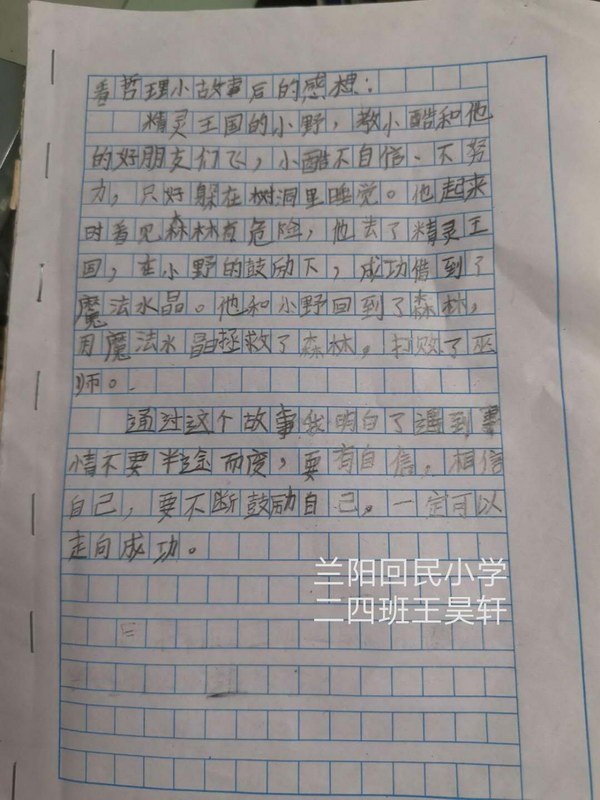 看哲理小故事后的感想：
精灵王国的小野，教小酷和他
的好朋友们飞，小酷不自信、不努
力，只好躲在树洞里睡觉。他起来
时看见森林有危险，他去了精灵王
国，在小野的鼓励下，成功借到了
魔法水晶。他和小野回到了森林，
用魔法水晶拯救了森林，打败了巫
师。
通过这个故事我明白了遇到事
情不要半途而废，要有自信。相信
自己，要不断鼓励自己，一定可以
走向成功。
兰阳回民小学
二四班王昊轩